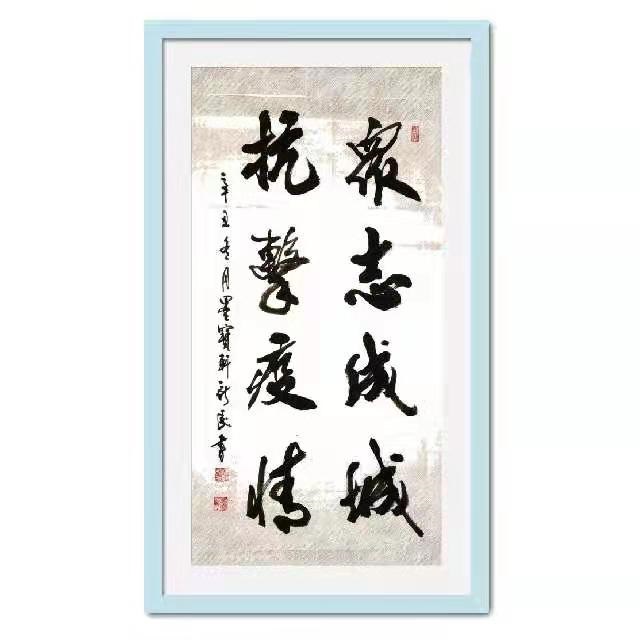 眾志成城
抗擊疫情
辛丑冬月墨寶軒新民書